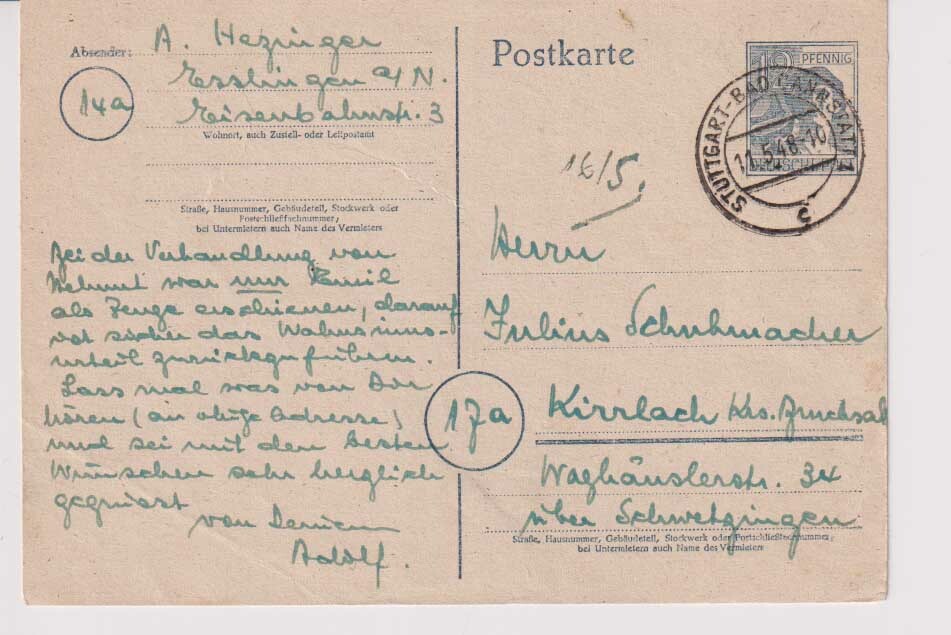 Absender:
A. Hezinger
Esslingen a/N.
Eisenbahnstr. 3
14a
Wohnort, auch Zustell- oder Leitpostamt
Straße, Hausnummer, Gebäudeteil, Stockwerk oder
Postschließfachnummer;
bei Untermietern auch Name des Vermieters
Bei der Verhandlung von
war nur Emil
als Zeuge erschienen, darauf
ist sicher das Wahnsinns-
urteil zurückzuführen.
Lass mal was von Dir
hören (an obige Adresse)
und sei mit den besten
Wünschen sehr herzlich
gegrüsst
von Deinem
Adolf.
Postkarte
12 PFENNIG
STUTTGART-BAD CANNSTATT 1
11.5.48-10
16/5.
Herrn
Julius Schuhmacher
17a
Kirrlach Krs. Bruchsal
Waghäuslerstr. 34
über Schwetzingen
Straße, Hausnummer, Gebäudeteil, Stockwerk oder Postschließfachnummer;
bei Untermietern auch Name des Vermieters